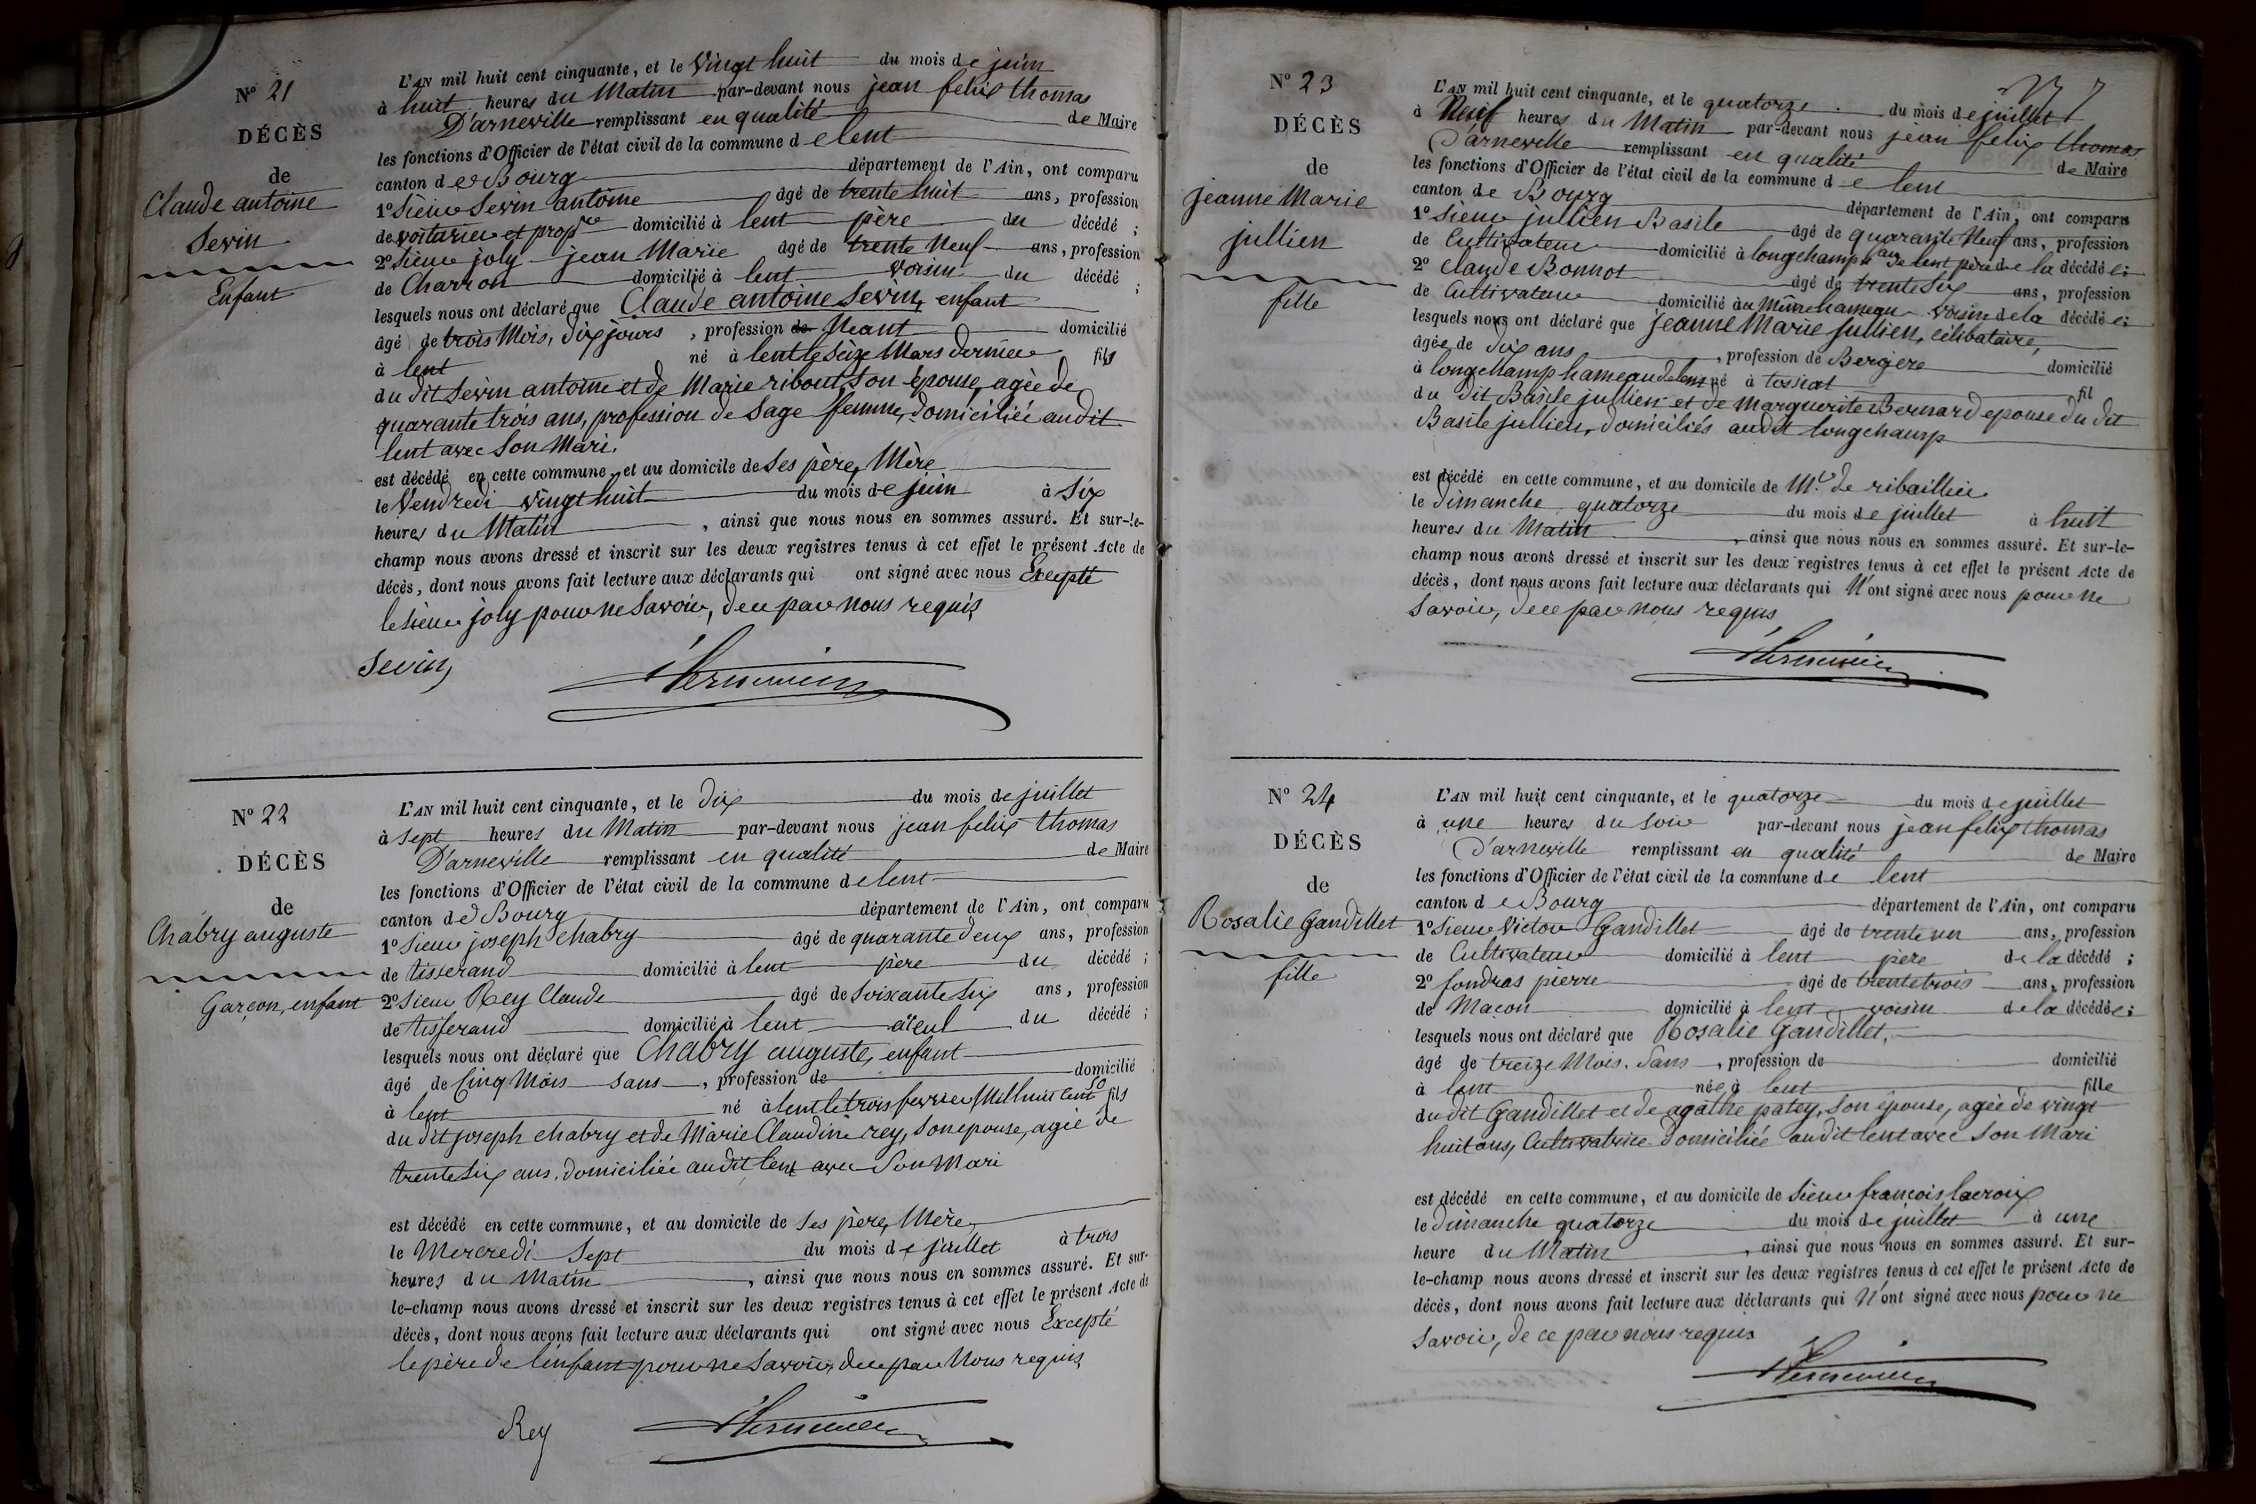 N° 21
DÉCÈS
de
Claude antoine
Sevin
Enfant
L'AN mil huit cent cinquante, et le Vingt huit du mois de juin
à huit heures du Matin par-devant nous jean felix thomas
D'arneville remplissant en qualité de Maire
les fonctions d'Officier de l'état civil de la commune de lent
canton de Bourg département de l'Ain, ont comparu
1° Sieur Sevin antoine âgé de trente huit ans, profession
de voiturier et propre domicilié à lent père du décédé ;
2° Sieur joly jean Marie âgé de trente Neuf ans, profession
de Charron domicilié à lent voisin du décédé ;
lesquels nous ont déclaré que Claude antoine Sevin, enfant
âgé de trois Mois, dix jours , profession de Neant domicilié
à lent né à lent le Seize Mars dernier fils
du dit Sevin antoine et de Marie ribout, son épouse, agée de
quarante trois ans, profession de Sage femme, domiciliée audit
lent avec Son Mari.
est décédé en cette commune, et au domicile de Ses père, Mère
le Vendredi vingt huit du mois de juin à Six
heures du Matin , ainsi que nous nous en sommes assuré. Et sur-le-
champ nous avons dressé et inscrit sur les deux registres tenus à cet effet le présent Acte de
décès, dont nous avons fait lecture aux déclarants qui ont signé avec nous Excepté
le Sieur joly pour ne Savoir, de ce par nous requis
Sevin
N° 22
DÉCÈS
de
Chabry auguste
Garçon, enfant
L'AN mil huit cent cinquante, et le dix du mois de juillet
à Sept heures du Matin par-devant nous jean felix thomas
D'arneville remplissant en qualité de Maire
les fonctions d'Officier de l'état civil de la commune de lent
canton de Bourg département de l'Ain, ont comparu
1° Sieur joseph chabry âgé de quarante deux ans, profession
de tisserand domicilié à lent père du décédé ;
2° Sieur Rey Claude âgé de Soixante Six ans, profession
de tisserand domicilié à lent aïeul du décédé ;
lesquels nous ont déclaré que Chabry auguste, enfant
âgé de Cinq Mois sans , profession de domicilié
à lent né à lent le trois fevrier Mil huit Cent 50 fils
du dit joseph chabry et de Marie Claudine rey, son epouse, agée de
trente Six ans, domiciliée audit lent avec Son Mari
est décédé en cette commune, et au domicile de Ses père, Mère
le Mercredi Sept du mois de juillet à trois
heures du Matin , ainsi que nous nous en sommes assuré. Et sur-
le-champ nous avons dressé et inscrit sur les deux registres tenus à cet effet le présent Acte de
décès, dont nous avons fait lecture aux déclarants qui ont signé avec nous Excepté
le père de l'enfant pour ne Savoir, de ce par Nous requis
Rey
N° 23
DÉCÈS
de
jeanne Marie
jullien
fille
L'AN mil huit cent cinquante, et le quatorze du mois de juillet
à Neuf heures du Matin par-devant nous jean felix thomas
D'arneville remplissant en qualité de Maire
les fonctions d'Officier de l'état civil de la commune de lent
canton de Bourg département de l'Ain, ont comparu
1° Sieur jullien Basile âgé de quarante Neuf ans, profession
de Cultivateur domicilié à longchamp hau de lent père de la décédée ;
2° Claude Bonnot âgé de trente Six ans, profession
de Cultivateur domicilié au Même hameau voisin de la décédée ;
lesquels nous ont déclaré que jeanne Marie jullien, célibataire,
âgée de dix ans , profession de Bergère domicilié
à longchamp hameau de lent né à tossiat fil
du dit Basile jullien et de Marguerite Bernard epouse du dit
Basile jullien, domiciliés audit longchamp
est décédé en cette commune, et au domicile de Mr de ribaillier
le dimanche quatorze du mois de juillet à huit
heures du Matin , ainsi que nous nous en sommes assuré. Et sur-le-
champ nous avons dressé et inscrit sur les deux registres tenus à cet effet le présent Acte de
décès, dont nous avons fait lecture aux déclarants qui N'ont signé avec nous pour ne
Savoir, de ce par nous requis
N° 24
DÉCÈS
de
Rosalie Gandillet
fille
L'AN mil huit cent cinquante, et le quatorze du mois de juillet
à une heures du Soir par-devant nous jean felix thomas
D'arneville remplissant en qualité de Maire
les fonctions d'Officier de l'état civil de la commune de lent
canton de Bourg département de l'Ain, ont comparu
1° Sieur Victor Gandillet âgé de trente un ans, profession
de Cultivateur domicilié à lent père de la décédé ;
2° fondras pierre âgé de trente trois ans, profession
de Maçon domicilié à lent voisin de la décédée ;
lesquels nous ont déclaré que Rosalie Gandillet,
âgé de treize Mois, Sans , profession de domicilié
à lent née à lent fille
du dit Gandillet et de agathe patey, Son épouse, agée de vingt
huit ans, Cultivatrice domiciliée audit lent avec Son Mari
est décédé en cette commune, et au domicile de Sieur françois lacroix
le dimanche quatorze du mois de juillet à une
heure du Matin , ainsi que nous nous en sommes assuré. Et sur-
le-champ nous avons dressé et inscrit sur les deux registres tenus à cet effet le présent Acte de
décès, dont nous avons fait lecture aux déclarants qui N'ont signé avec nous pour ne
Savoir, de ce par nous requis